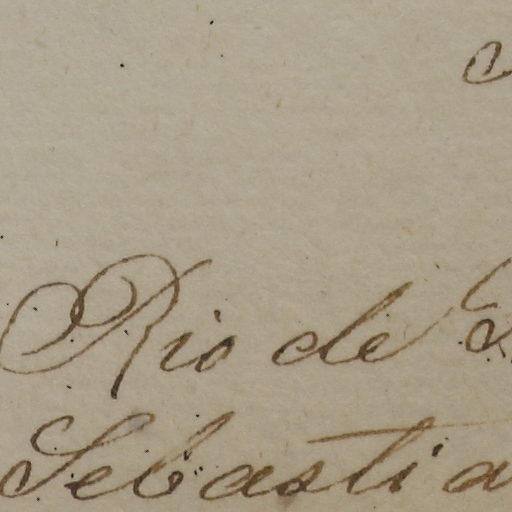 Rio de
Sebastia